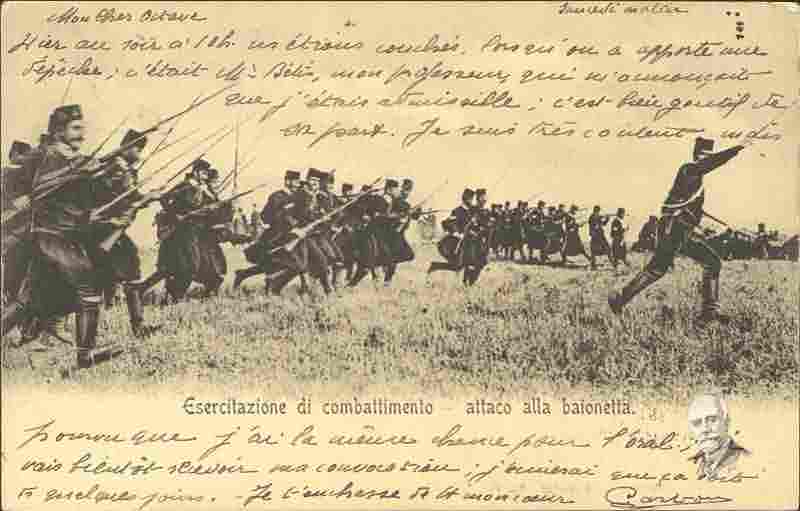 Mon cher Octave
Samedi matin
Hier au soir à 10h. ns étions couchés. Lorsqu'on a apporté une
dépêche; c'était Mr. Bétis, mon professeur, qui m'annonçait
que j'étais admissible; c'est bien gentil de
sa part. Je suis très content, mais
Esercitazione di combattimento – attaco alla baionetta.
pourvu que j'ai la même chance pour l'oral; je
vais bientôt recevoir ma convocation; j'aimerai que ça soit
ds quelques jours. - Je t'embrasse de tt mon coeur
Gaston